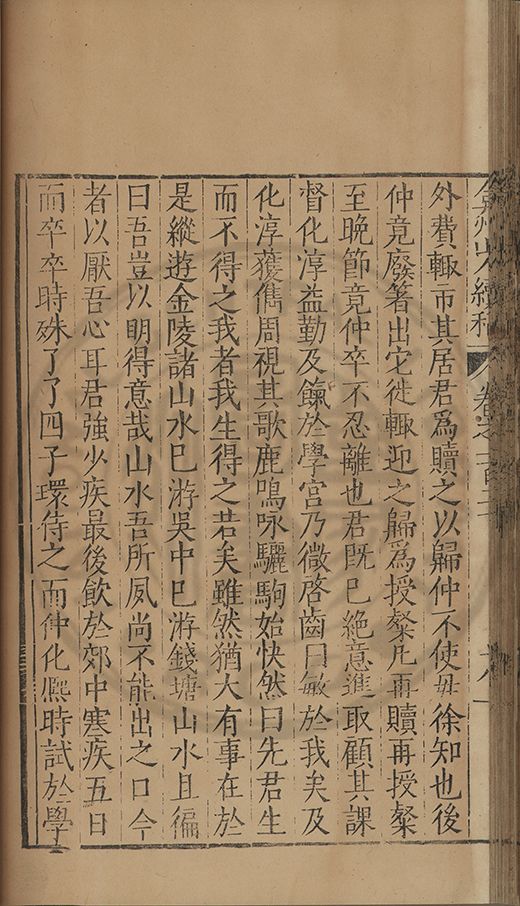 弇州山人續稿 卷之一百二 十八
外費輒市其居君爲贖之以歸仲不使毋徐知也後
仲竟廢箸出它徙輒迎之歸爲授粲凡再贖再授粲
至晚節竟仲卒不忍離也君既已絕意進取顧其課
督化淳益勤及餼於學宮乃微啓齒曰敏於我矣及
化淳獲雋周視其歌鹿鳴咏驪駒始快然曰先君生
而不得之我者我生得之若矣雖然猶大有事在於
是縱遊金陵諸山水已游吳中已游錢塘山水且徧
曰吾豈以明得意哉山水吾所夙尚不能出之口今
者以厭吾心耳君強少疾最後飲於郊中寒疾五日
而卒卒時殊了了四子環侍之而仲化熈時試於學